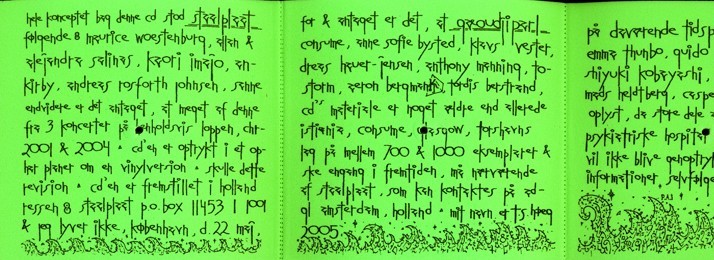 hele konceptet bag denne cd stod staalplaat
følgende & maurice woestenburg, ellen &
alejandra salinas, kaori imajo, an-
kirby, andreas rosforth johnsen, sanne
endvidere er det antaget, at meget af denne
fra 3 koncerter på loppen, chr-
2001 & 2004 • cd'en er optrykt i et op-
har planer om en vinylversion • skulle dette
revision • cd'en er fremstillet i holland
ressen & staalplaat p.o.box 11453 1001
& jeg lyver ikke, københavn, d. 22 maj,
for & antaget er det, at
consume, anne sofie bysted, klavs vester,
dreas hauer-jensen, anthony manning, to-
storm, aaron bergman, tordis berstrand,
cd's materiale er noget ældre end allerede
istiania, consume, glasgow, torshavns
lag på mellem 700 & 1000 eksemplarer &
ske engang i fremtiden, må nærværende
af staalplaat, som kan kontaktes på ad-
gl amsterdam, holland • mit navn er
2005
på daværende tidsp
emma thunbo, guido
shiyuki kobayashi,
mads heldtberg, caspe
oplyst, da store dele
psykiatriske hospital
vil ikke blive genoptry
informationer, selvfølge